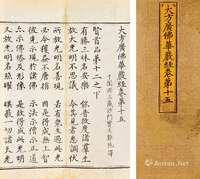 大方廣佛華嚴經卷第十五
大方廣佛華嚴經卷第十五
于闐國三藏沙門實叉難陀譯
賢首品第十二之下
有勝三昧名安樂 能普救度諸群生
放大光明不思議 令其見者悉調伏
所放光明名善現 若有眾生遇此光
必令獲益不唐捐 因是得成無上智
彼光示現於諸佛 示法示僧示正道
亦示佛塔及形像 是故得成此光明
又放光明名照曜 映蔽一切諸天光